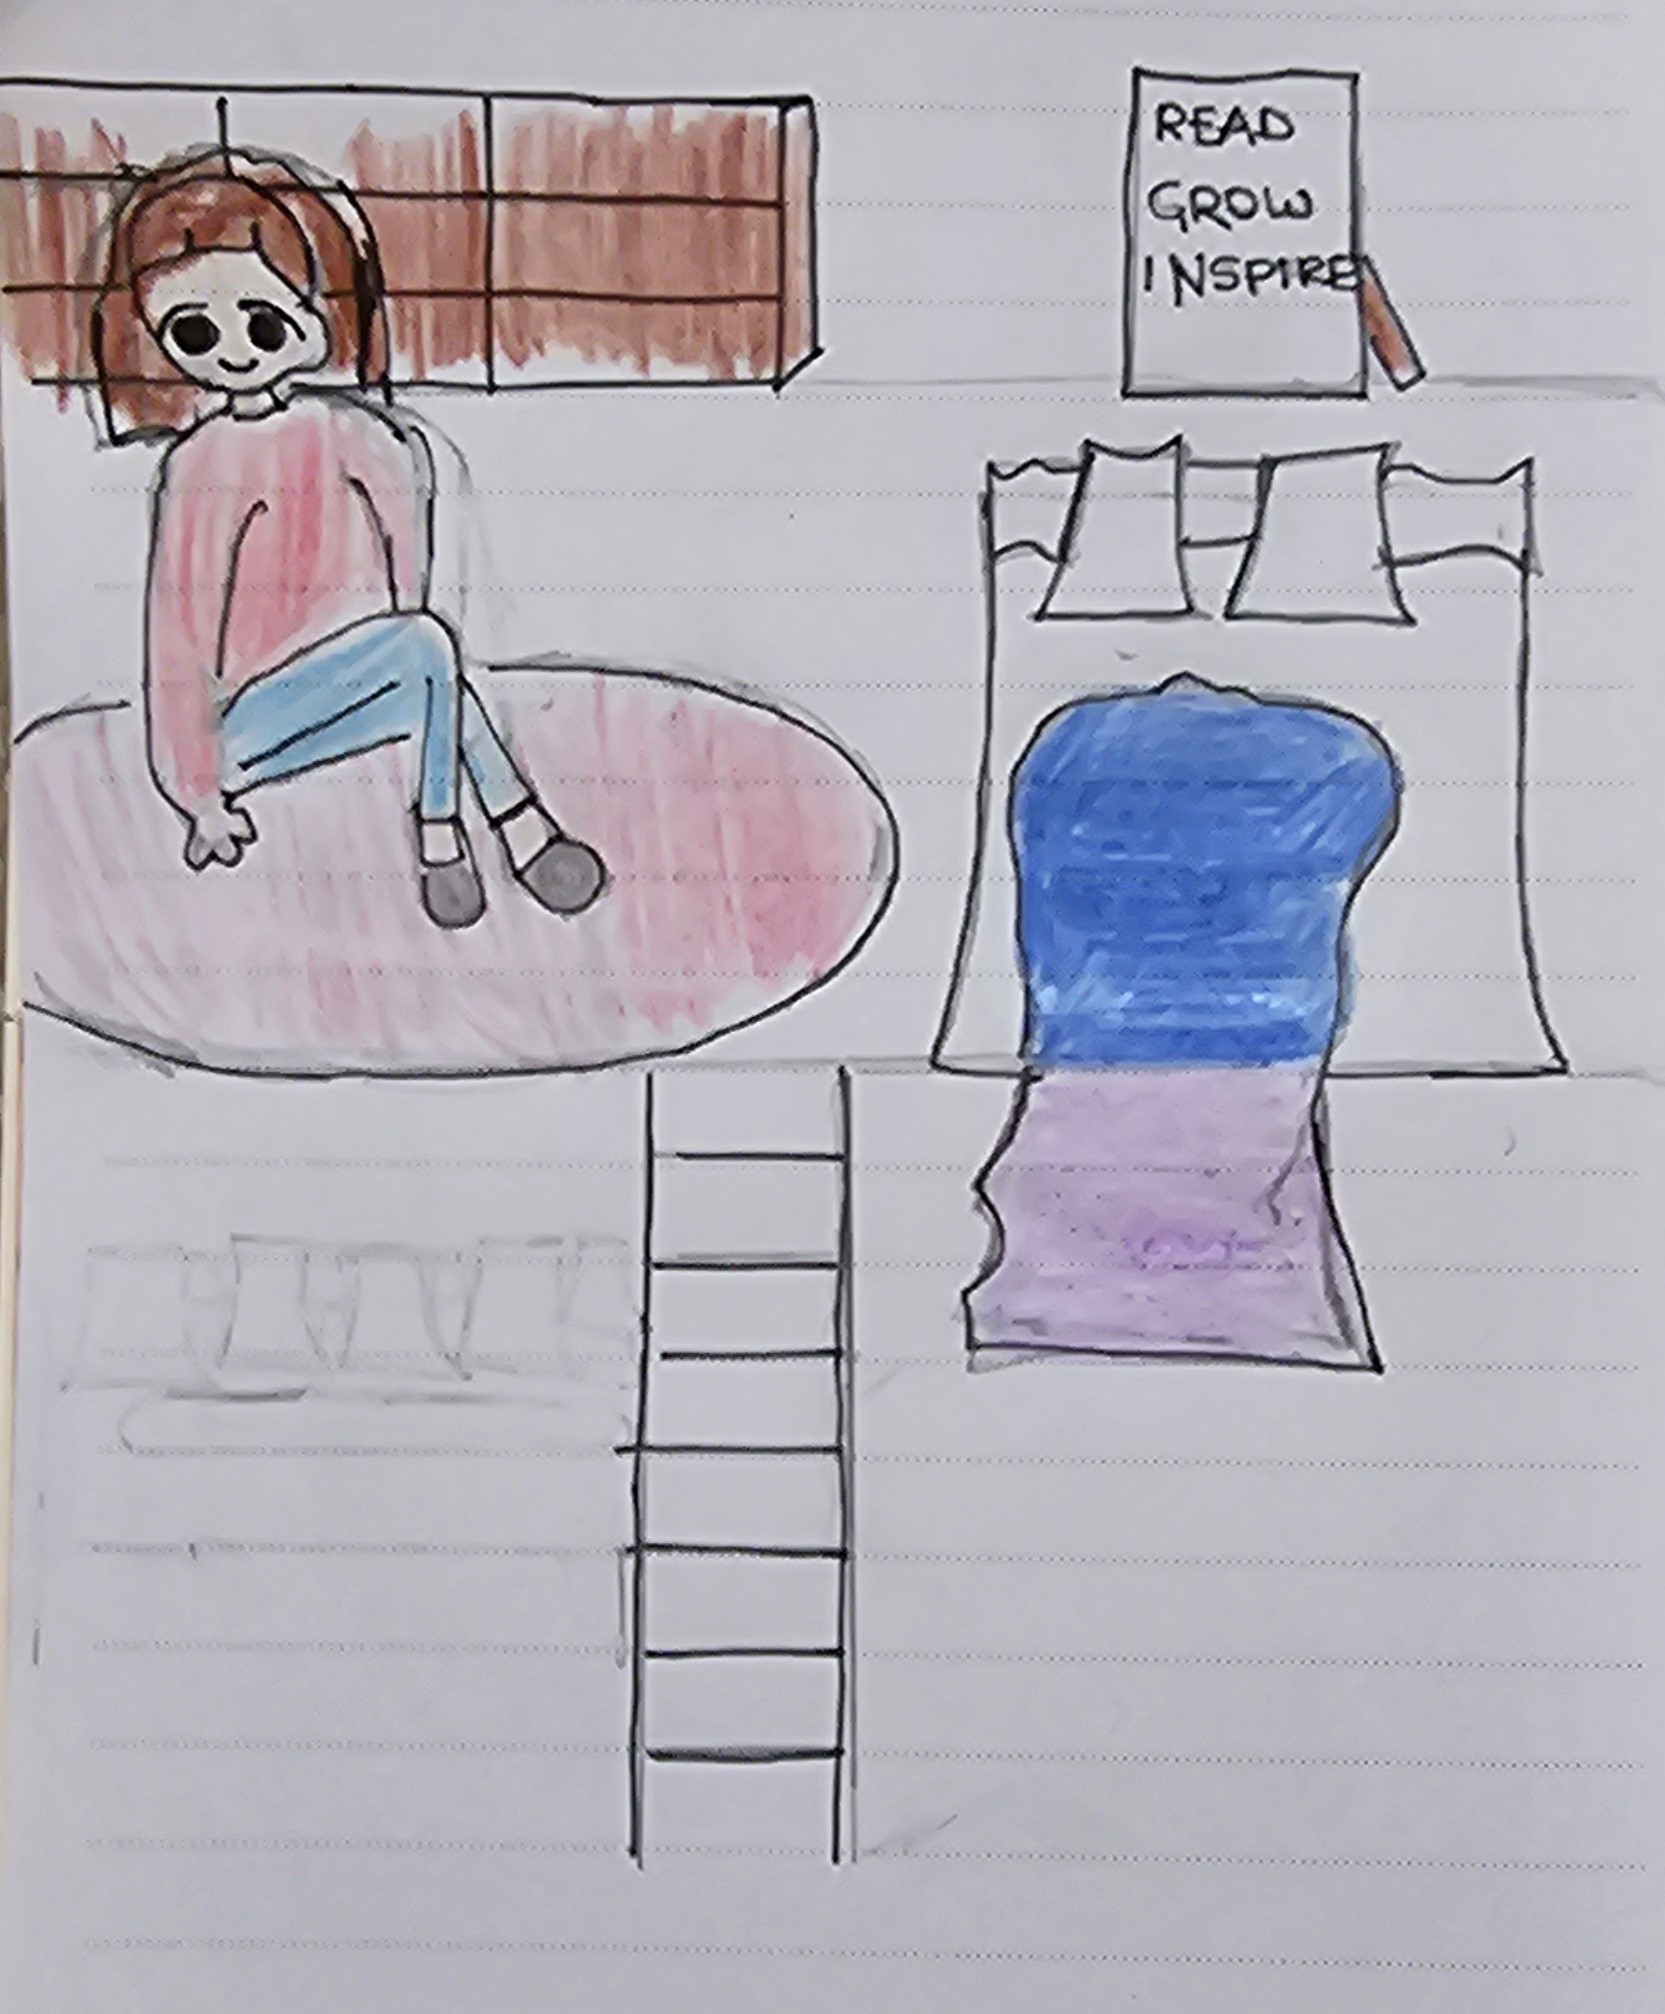 READ
GROW
INSPIRE